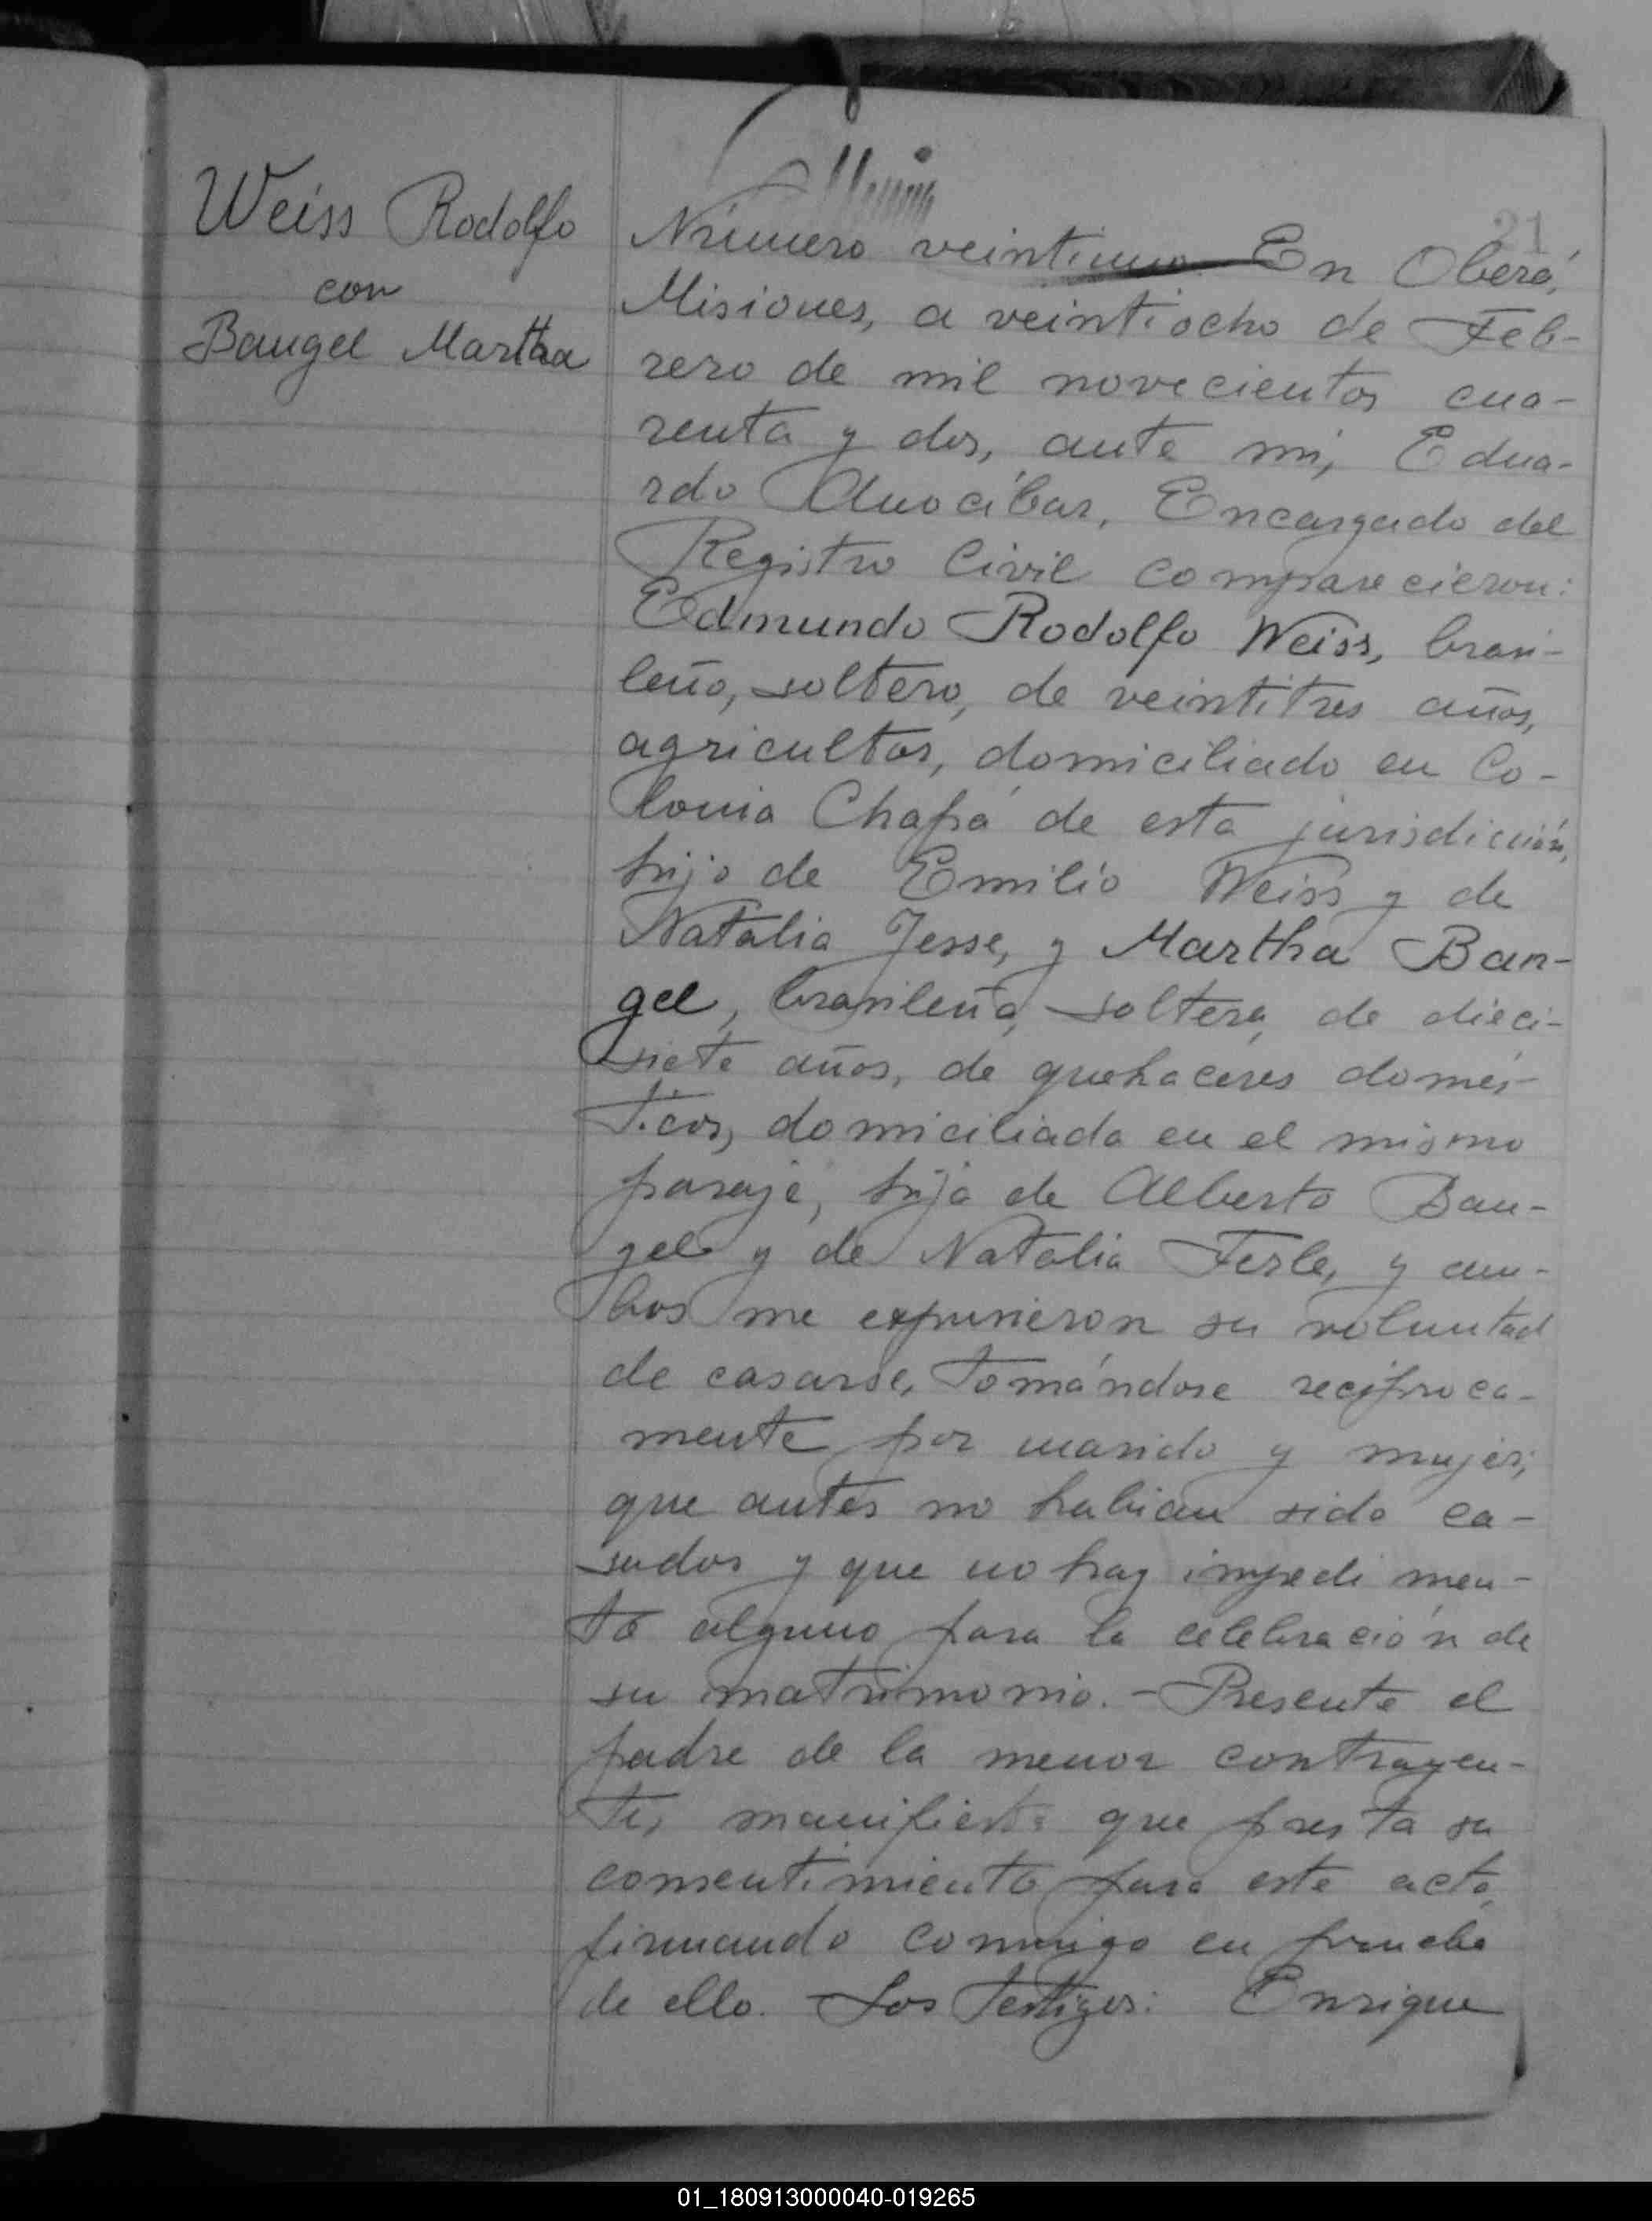 Weiss Rodolfo
con
Bangel Martha
21
Número veintiuno En Oberá,
Misiones, a veintiocho de Feb-
rero de mil novecientos cua-
renta y dos, ante mi, Edua-
rdo Anocíbar, Encargado del
Registro Civil comparecieron:
Edmundo Rodolfo Weiss, brasi-
leño, soltero, de veintitres años,
agricultor, domiciliado en Co-
lonia Chapá de esta jurisdición,
hijo de Emilio Weiss y de
Natalia Jesse, y Martha Ban-
gel, brasileña, soltera, de dieci-
siete años, de quehaceres domés-
ticos, domiciliada en el mismo
paraje, hija de Alberto Ban-
gel y de Natalia Ferle, y am-
bos me expusieron su voluntad
de casarse, tomándose recíproca-
mente por marido y mujer;
que antes no habian sido ca-
sados y que no hay impedimen-
to alguno para la celebración de
su matrimonio. - Presente el
padre de la menor contrayen-
te, manifiesta que presta su
consentimiento para este acto,
firmando conmigo en prueba
de ello. Los testigos: Enrique
01_180913000040-019265